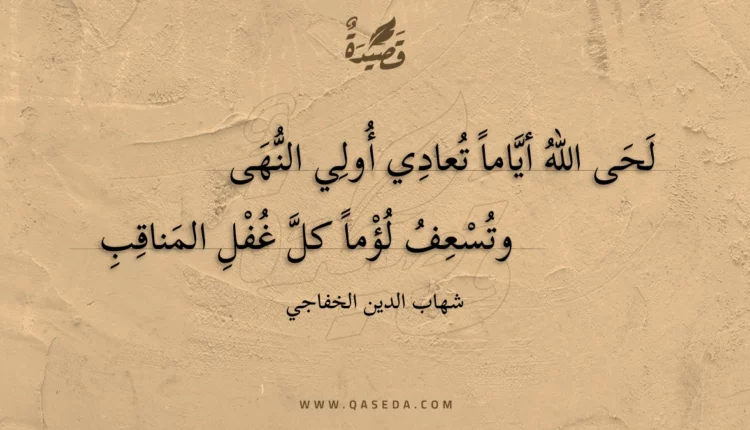 قَصِيدَةٌ
لَحَى اللهُ أيَّاماً تُعادِي أُولِي النُّهَى
وتُسْعِفُ لُؤْماً كلَّ غُفْلِ المَناقِبِ
شهاب الدين الخفاجي
WWW.QASEDA.COM